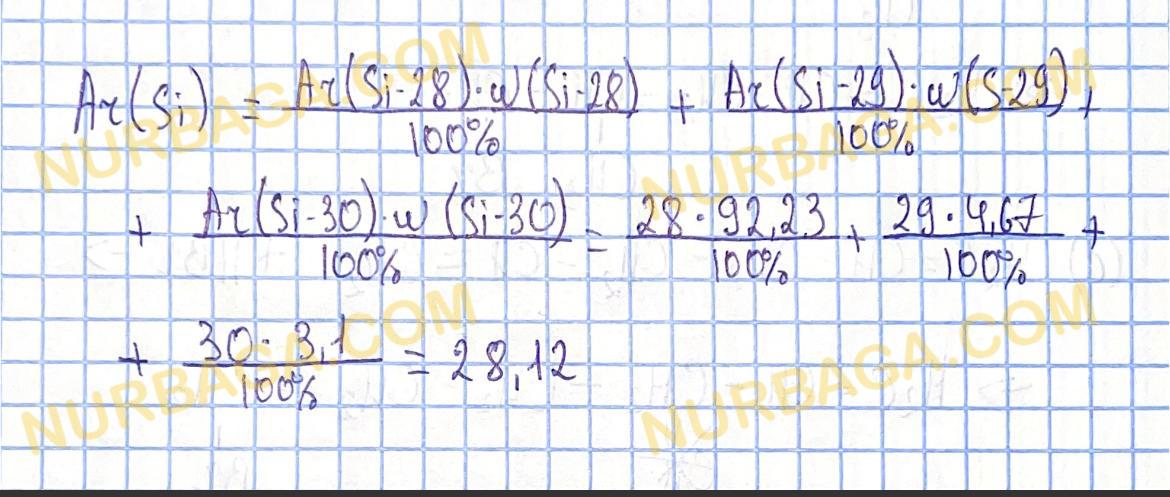 Ar(Si) = Ar(Si-28)·w(Si-28)/100% + Ar(Si-29)·w(S-29)/100% +
+ Ar(Si-30)·w(Si-30)/100% = 28·92,23/100% + 29·4,67/100% +
+ 30·3,1/100% = 28,12
NURBAGA.COM
NURBAGA.COM
NURBAGA.COM
NURBAGA.COM